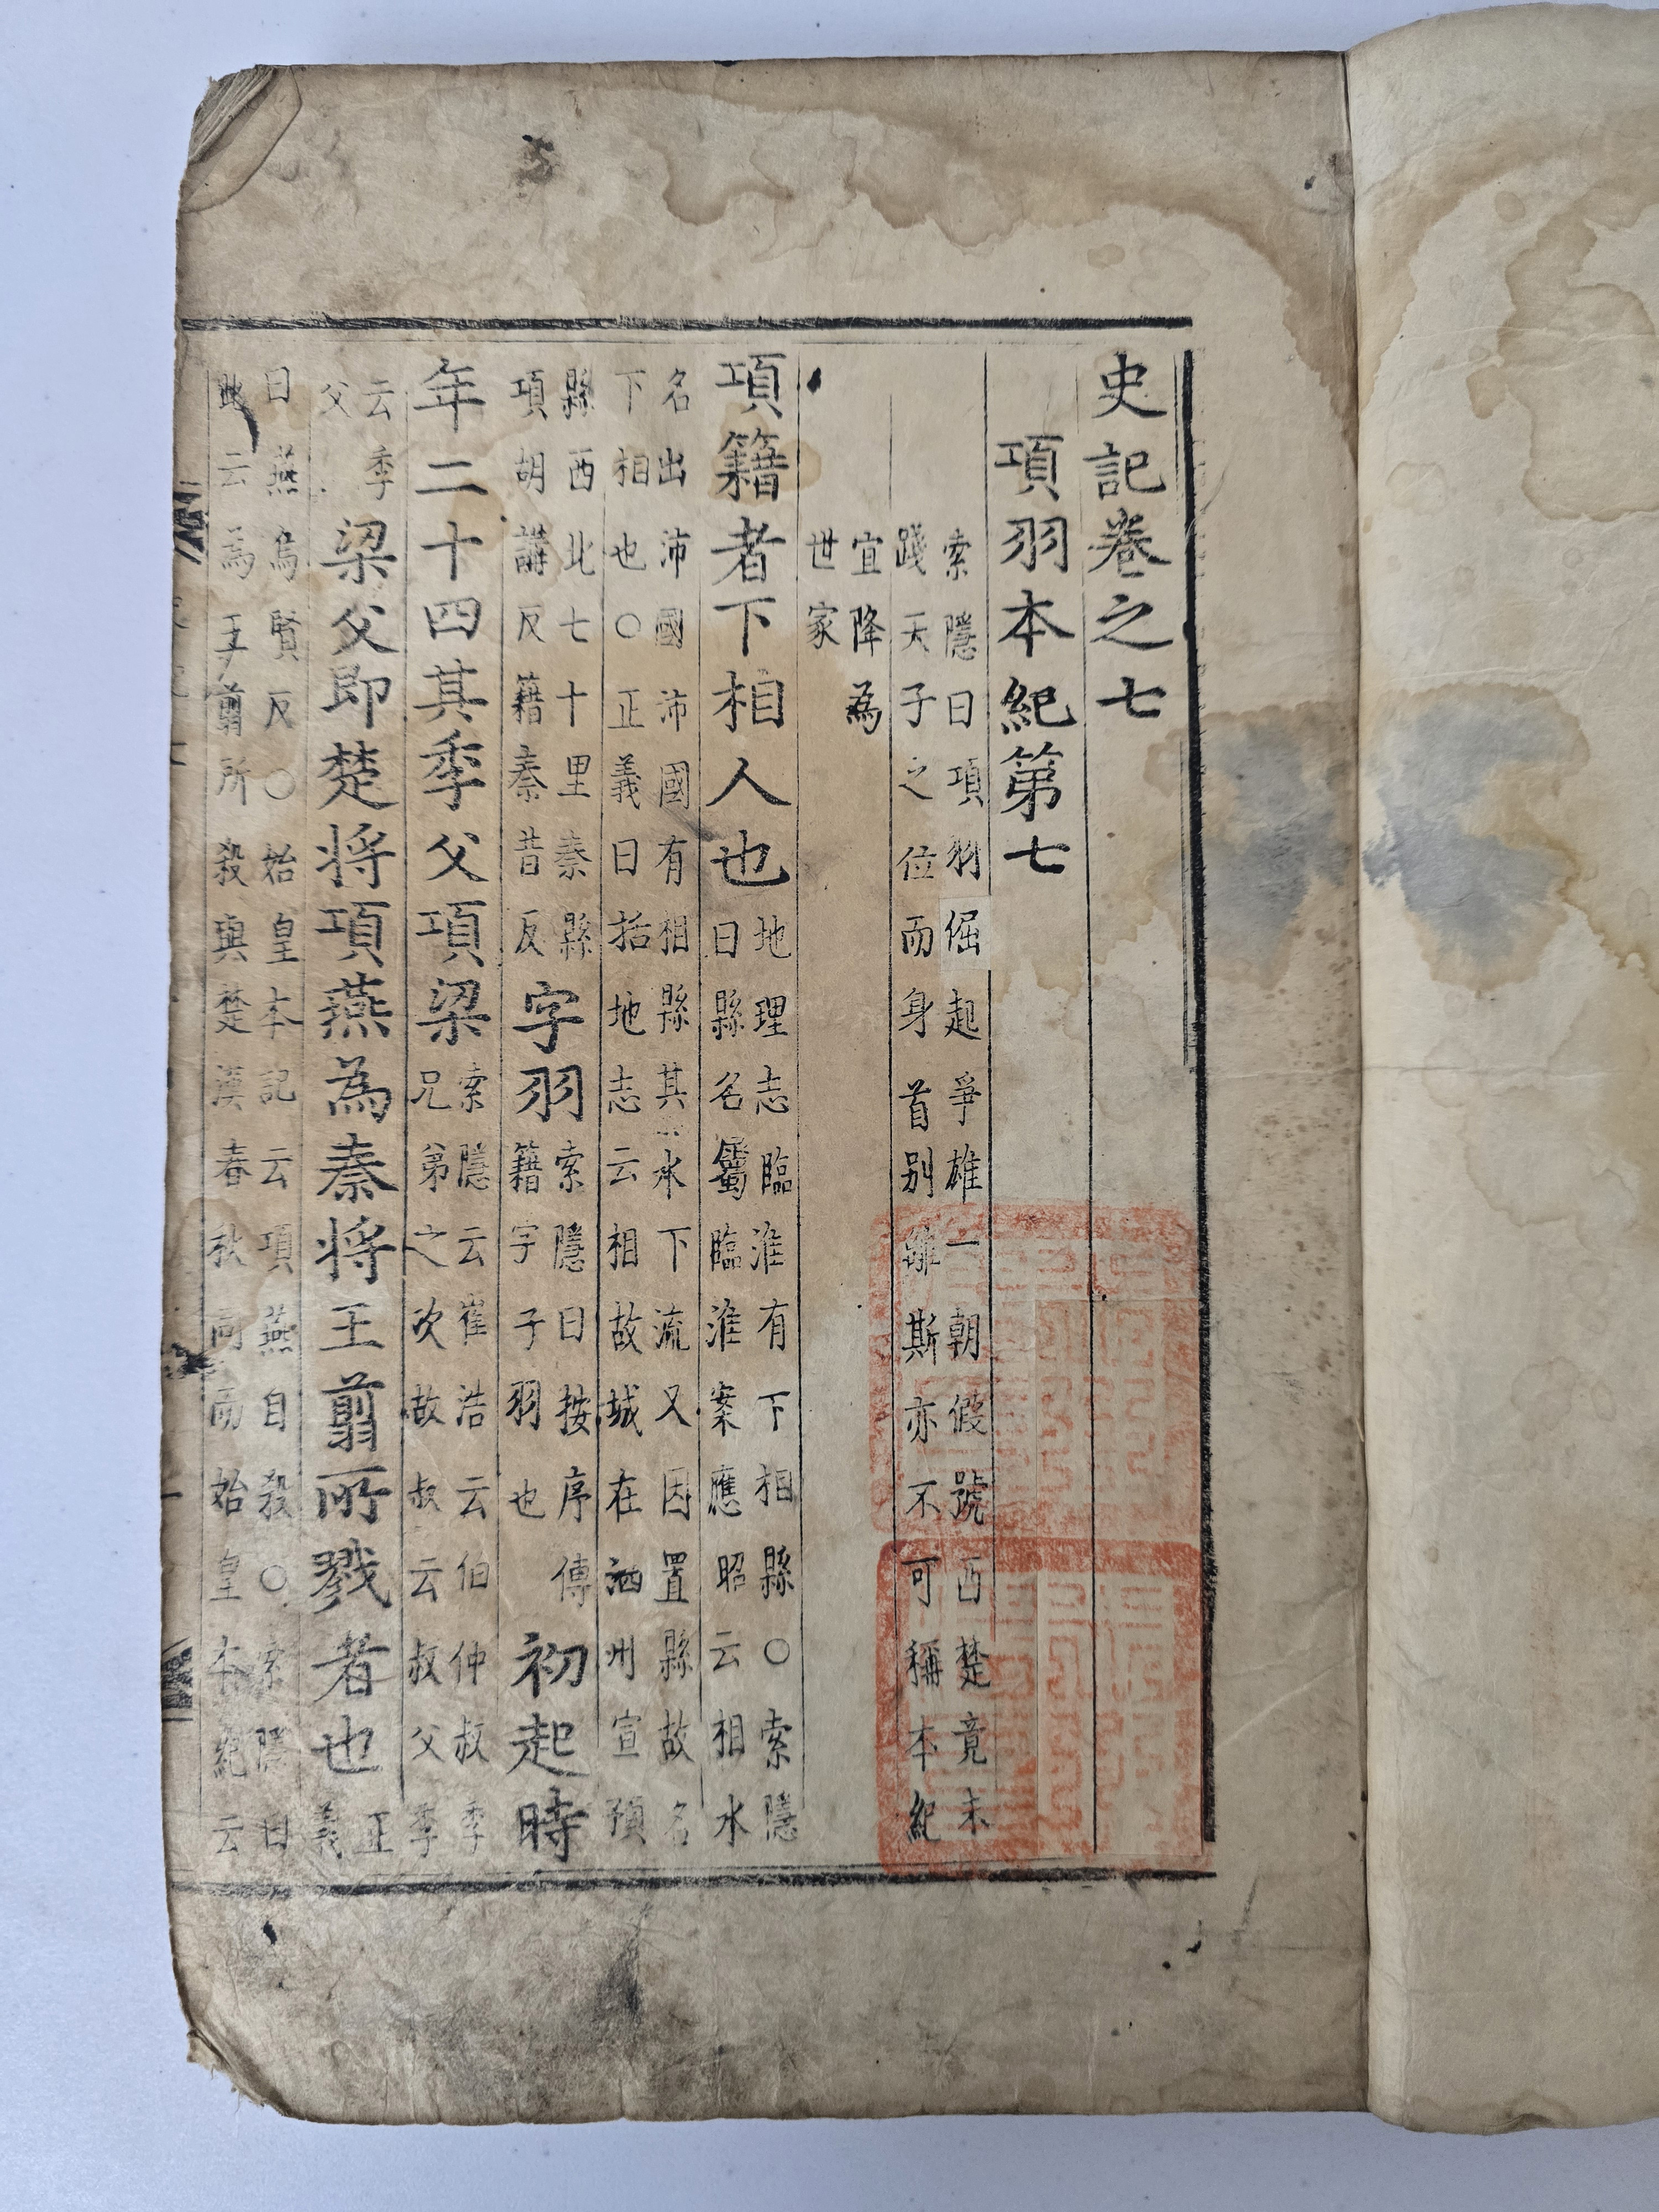 史記卷之七
項羽本紀第七
索隱曰項羽倔起爭雄一朝假號西楚竟未
踐天子之位而身首别離斯亦不可稱本紀
宜降為
世家
項籍者下相人也
地理志臨淮有下相縣○索隱
曰縣名屬臨淮案應昭云相水
名出沛國沛國有相縣其水下流又因置縣故名
下相也○正義曰括地志云相故城在泗州宣預
縣西北七十里秦縣
項胡講反籍秦昔反
字羽
索隱曰按序傳
籍字子羽也
初起時
年二十四其季父項梁
索隱云崔浩云伯仲叔季
兄弟之次故叔云叔父季
云季
父
梁父即楚將項燕為秦將王翦所戮者也
正
義
曰燕烏賢反○始皇本記云項燕自殺○索隱曰
此云為王翦所殺與楚漢春秋同而始皇本紀云